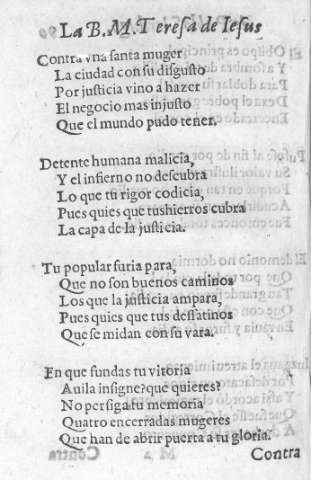 La B. M. Teresa de Iesus
Contra vna santa muger
La ciudad con su disgusto
Por justicia vino à hazer
El negocio mas injusto
Que el mundo pudo tener.
Detente humana malicia,
Y el infierno no descubra
Lo que tu rigor codicia,
Pues quies que tus hierros cubra
La capa de la justicia.
Tu popular furia para,
Que no son buenos caminos
Los que la justicia ampara,
Pues quies que tus desatinos
Que se midan con su vara.
En que fundas tu vitoria
Auila insigne? que quieres?
No persiga tu memoria
Quatro encerradas mugeres
Que han de abrir puerta a tu gloria.
Contra